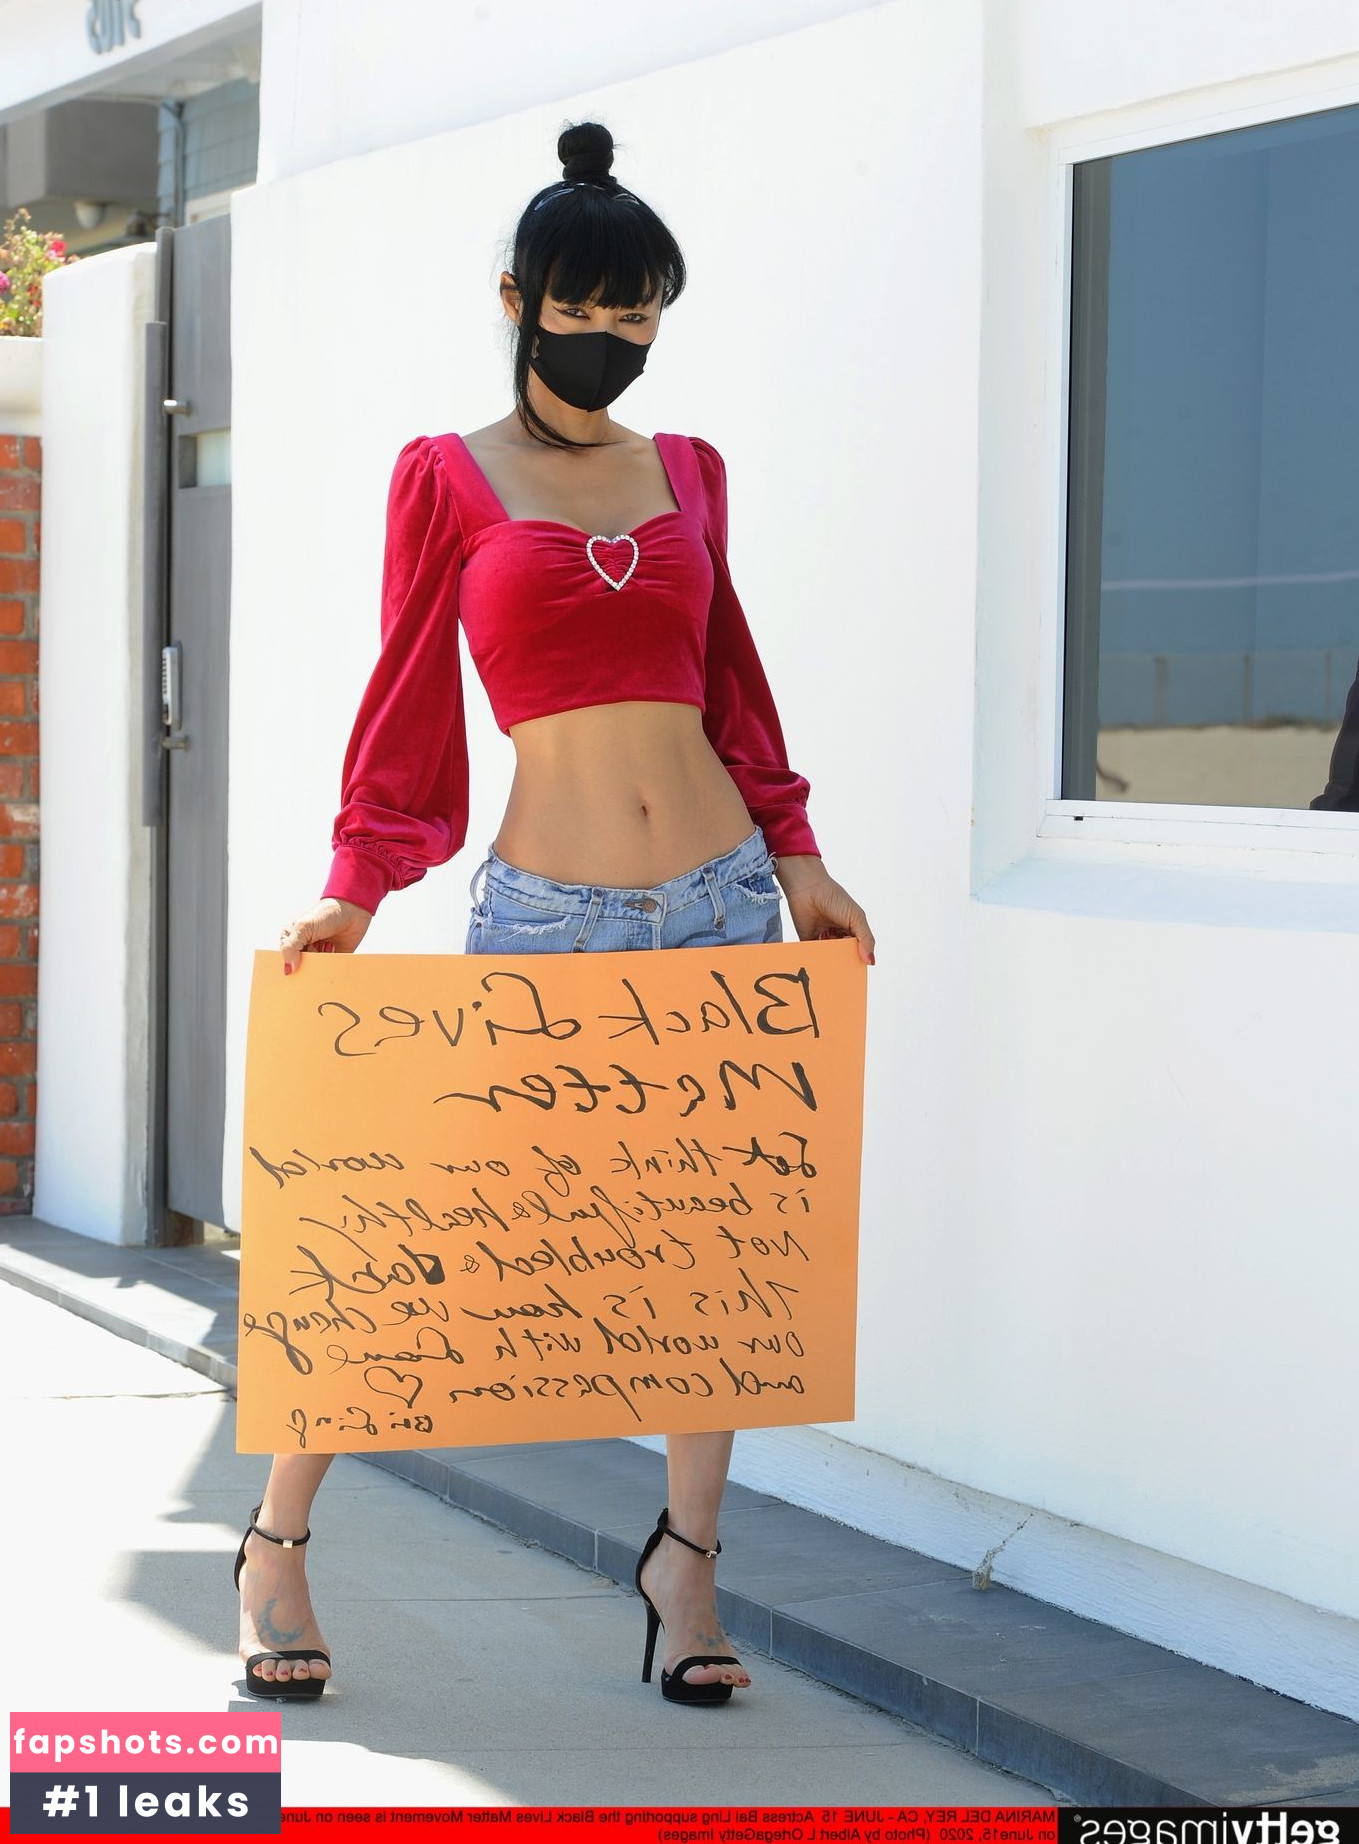 Black Lives
Matter
Let think of our world
is beautiful & healthy
Not troubled & dark
This is how we change
our world with Love
and compassion ♡
Bai Ling
fapshots.com
#1 leaks
MARINA DEL REY, CA - JUNE 15 Actress Bai Ling supporting the Black Lives Matter Movement is seen on June
on June15, 2020 (Photo by Albert L OrtegaGetty Images)
gettyimages®